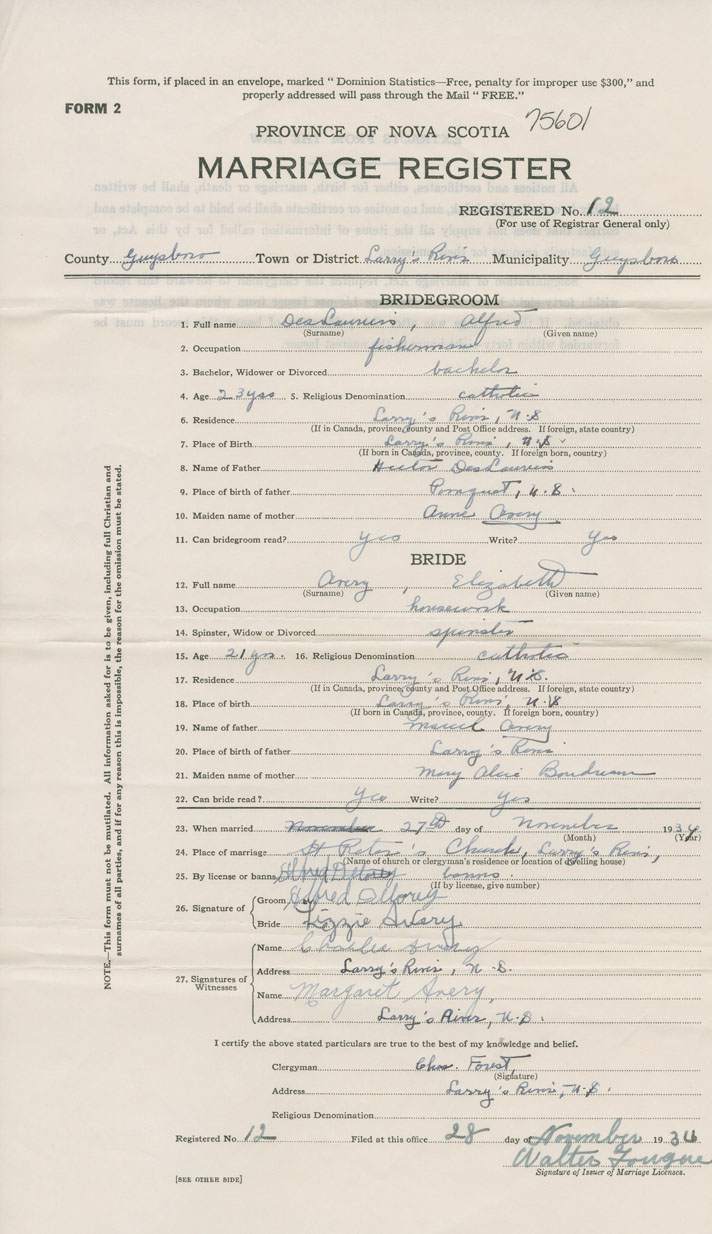 This form, if placed in an envelope, marked " Dominion Statistics—Free, penalty for improper use $300," and
properly addressed will pass through the Mail " FREE."
FORM 2
75601
PROVINCE OF NOVA SCOTIA
MARRIAGE REGISTER
REGISTERED No. 12
(For use of Registrar General only)
County Guysboro Town or District Larry's River Municipality Guysboro
BRIDEGROOM
1. Full name DesLauriers, Alfred
(Surname) (Given name)
2. Occupation fisherman
3. Bachelor, Widower or Divorced bachelor
4. Age 23 yrs 5. Religious Denomination catholic
6. Residence Larry's River, N.S
(If in Canada, province, county and Post Office address. If foreign, state country)
7. Place of Birth Larry's River, N.S.
(If born in Canada, province, county. If foreign born, country)
8. Name of Father DesLauriers
9. Place of birth of father Pomquet, N.S.
10. Maiden name of mother Anne Avery
11. Can bridegroom read? yes Write? Yes
BRIDE
12. Full name Avery, Elizabeth
(Surname) (Given name)
13. Occupation housework
14. Spinster, Widow or Divorced spinster
15. Age 21 yrs. 16. Religious Denomination catholic
17. Residence Larry's River, N.S.
(If in Canada, province, county and Post Office address. If foreign, state country)
18. Place of birth Larry's River, N.S
(If born in Canada, province, county. If foreign born, country)
19. Name of father Marcel Avery
20. Place of birth of father Larry's River
21. Maiden name of mother Mary Alice Boudreau
22. Can bride read? Yes Write? Yes
23. When married November 27th day of November 1934
(Month) (Year)
24. Place of marriage St Peter's Church, Larry's River,
(Name of church or clergyman's residence or location of dwelling house)
25. By license or banns banns.
(If by license, give number)
26. Signature of Groom Alfred
Bride Lizzie Avery
27. Signatures of Witnesses
Name Charlie Avery
Address Larry's River, N.S.
Name Margaret Avery,
Address Larry's River, N.S.
I certify the above stated particulars are true to the best of my knowledge and belief.
Clergyman Chas. Forest,
(Signature)
Address Larry's River, N.S.
Religious Denomination
Registered No. 12 Filed at this office 28 day of November 1934
Walter
Signature of Issuer of Marriage Licenses.
[SEE OTHER SIDE]
NOTE.—This form must not be mutilated. All information asked for is to be given, including full Christian and
surnames of all parties, and if for any reason this is impossible, the reason for the omission must be stated.